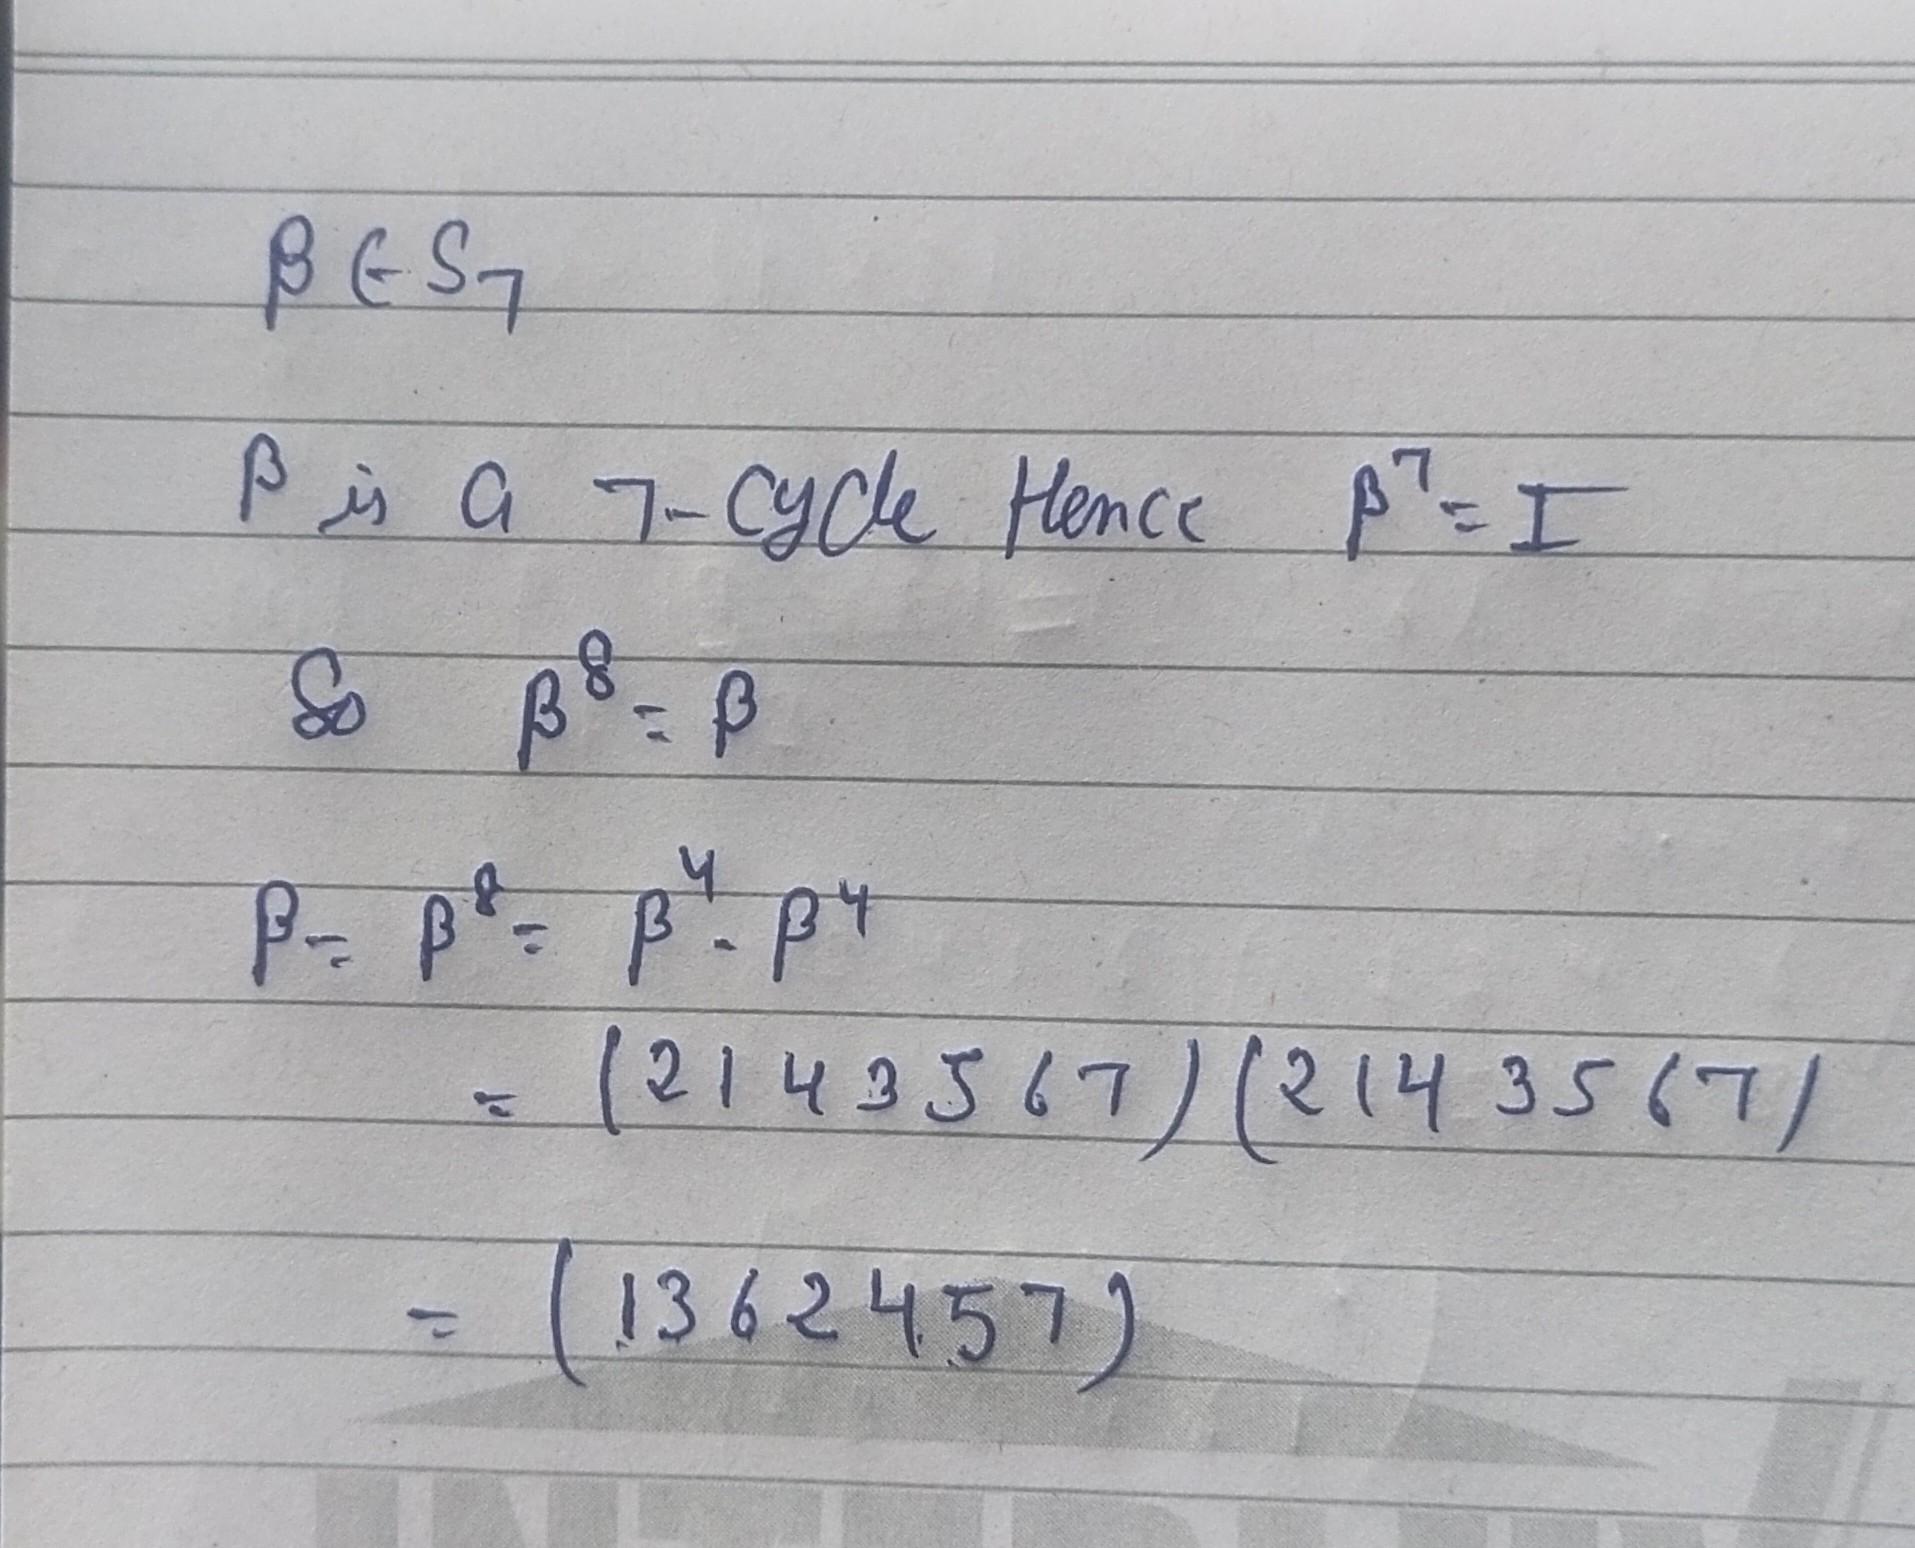 β ∈ S₇
β is a 7-cycle Hence β⁷ = I
So β⁸ = β
β = β⁸ = β⁴ . β⁴
= (2143567)(2143567)
= (1362457)